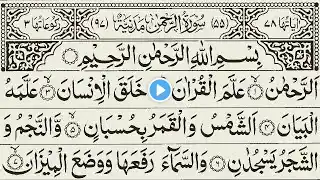 اٰیاتها ٧٨ (٥٥) سُوْرَةُ الرَّحْمٰنِ مَدَنِيَّةٌ (٩٧) رکوعاتها ٣
بِسْمِ اللّٰهِ الرَّحْمٰنِ الرَّحِيْمِ
اَلرَّحْمٰنُ ۙ﴿١﴾ عَلَّمَ الْقُرْاٰنَ ؕ﴿٢﴾ خَلَقَ الْاِنْسَانَ ۙ﴿٣﴾ عَلَّمَهُ
الْبَيَانَ ﴿٤﴾ اَلشَّمْسُ وَ الْقَمَرُ بِحُسْبَانٍ ۪﴿٥﴾ وَّ النَّجْمُ وَ
الشَّجَرُ يَسْجُدٰنِ ﴿٦﴾ وَ السَّمَآءَ رَفَعَهَا وَ وَضَعَ الْمِيْزَانَ ۙ﴿٧﴾